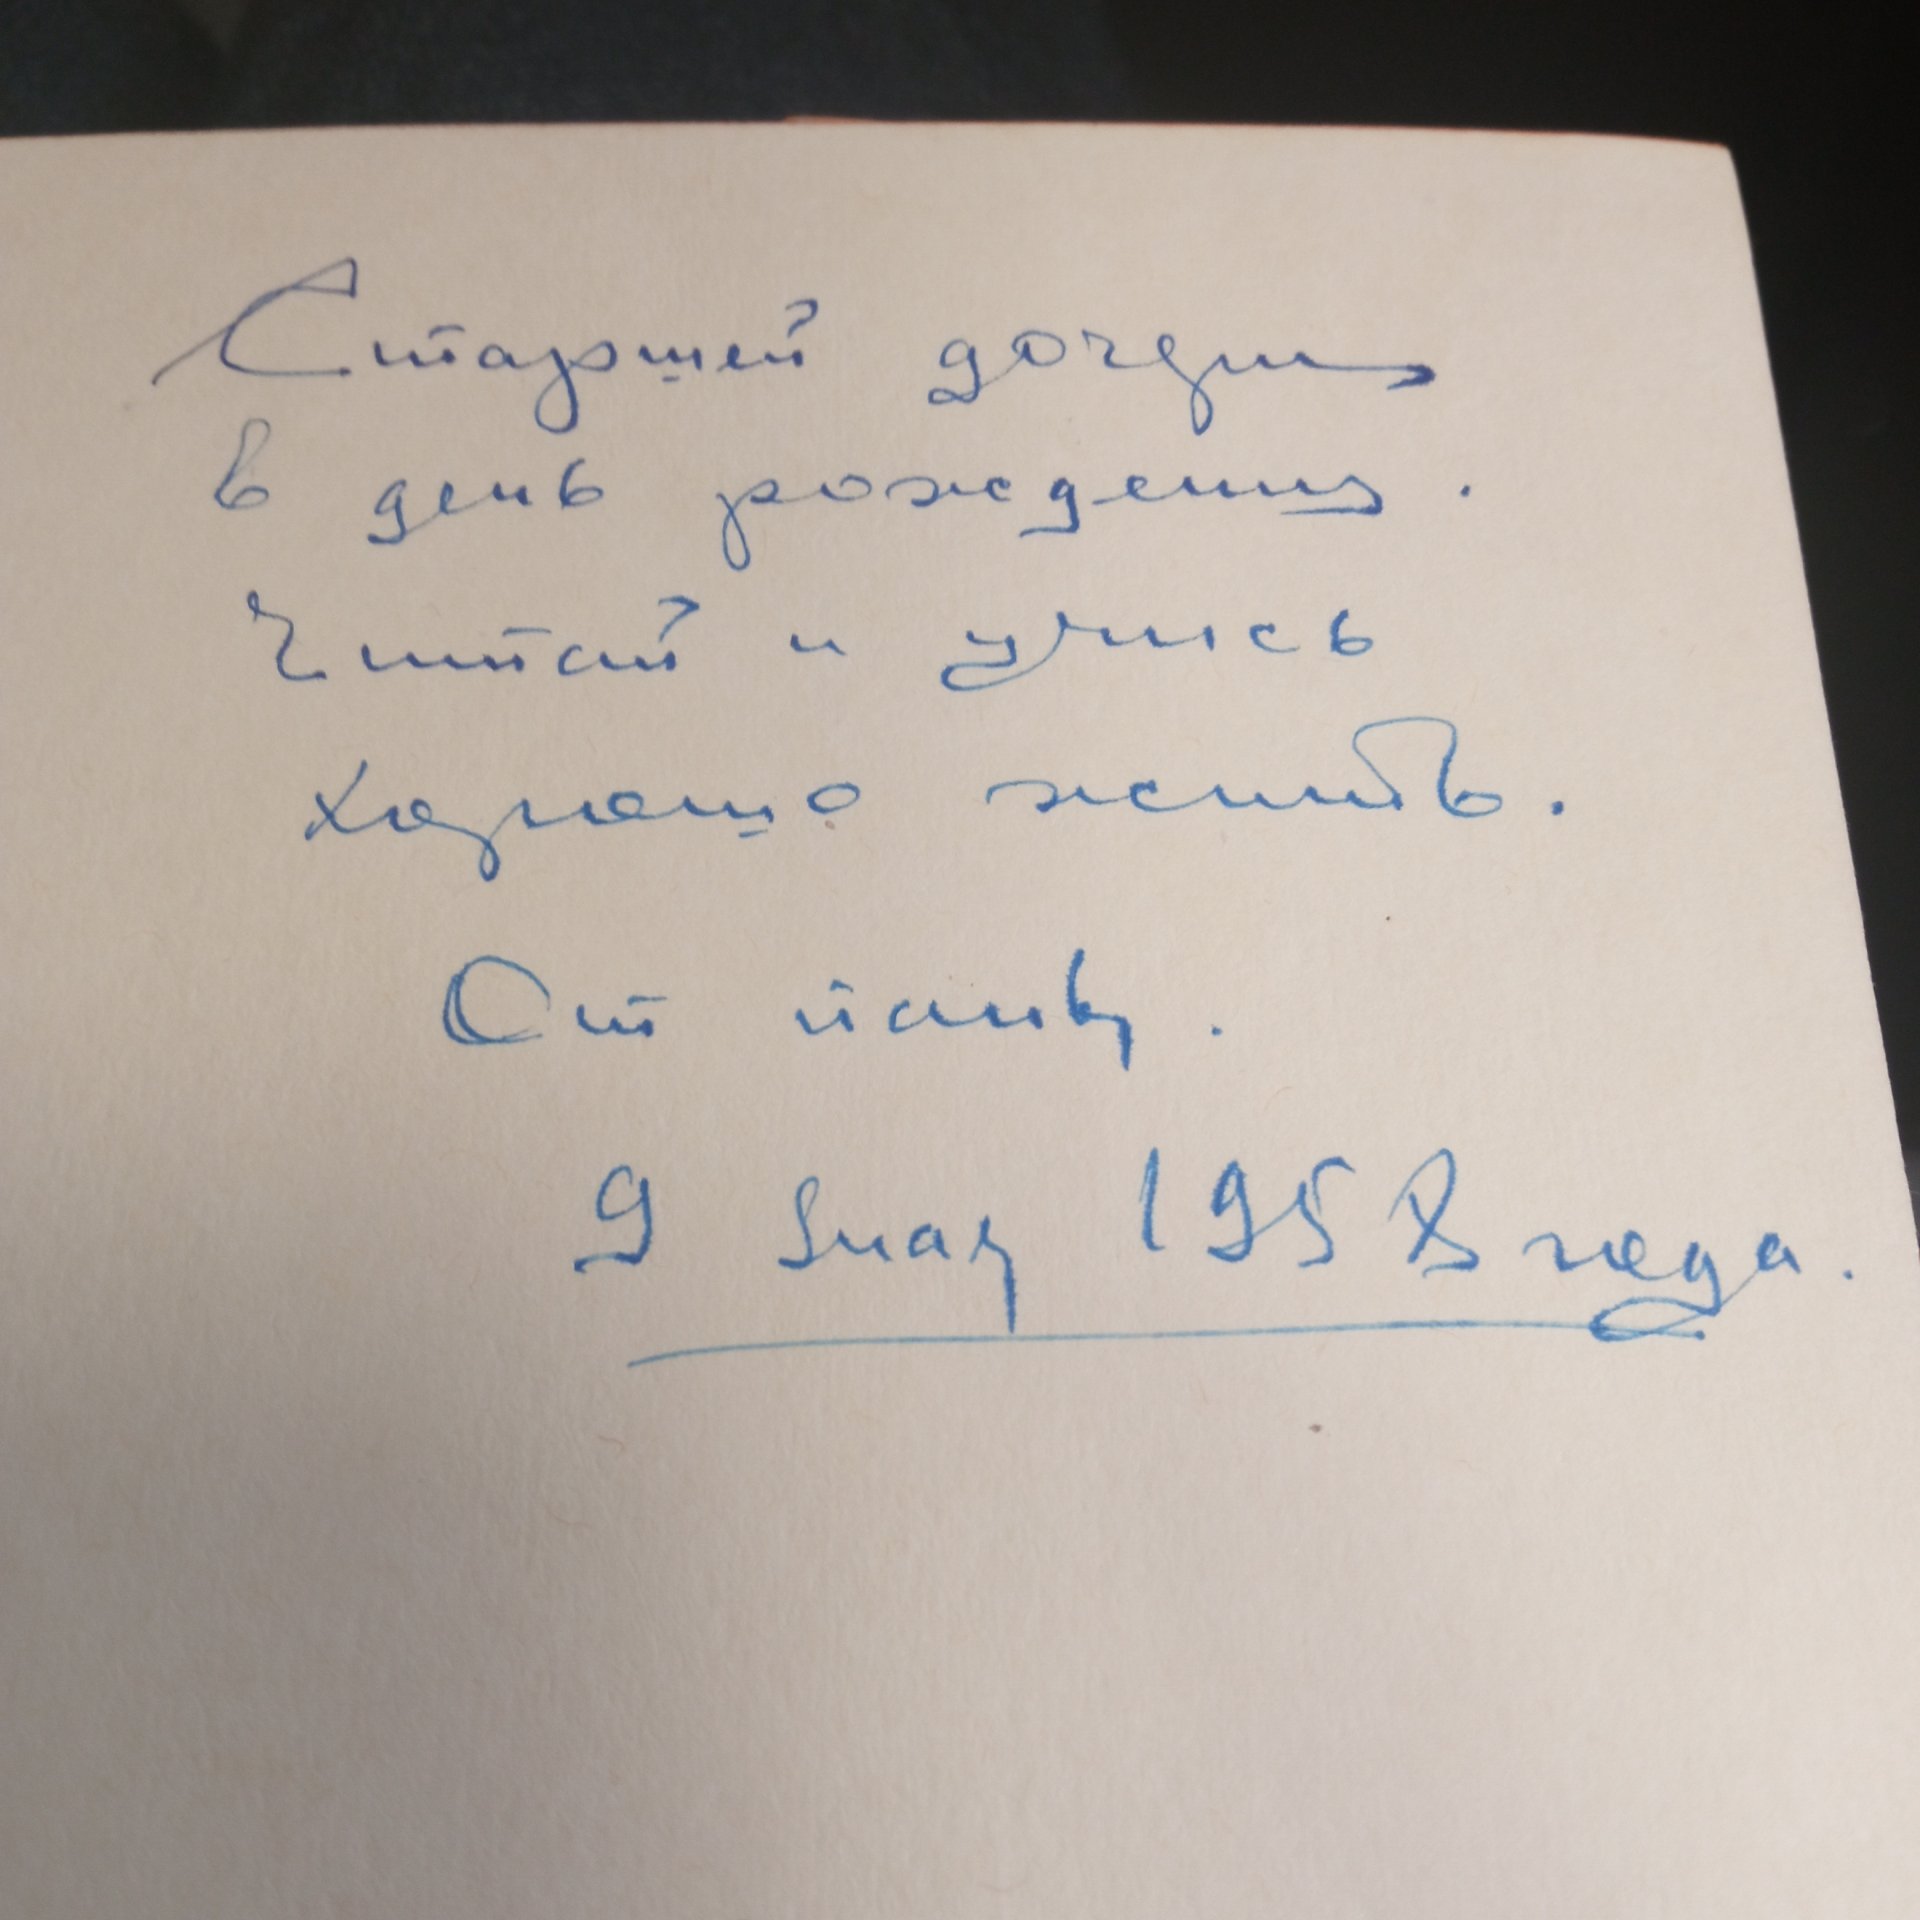 Старшей дочери
в день рождения.
Читай и учись
хорошо жить.
От папы.
9 мая 1958 года.